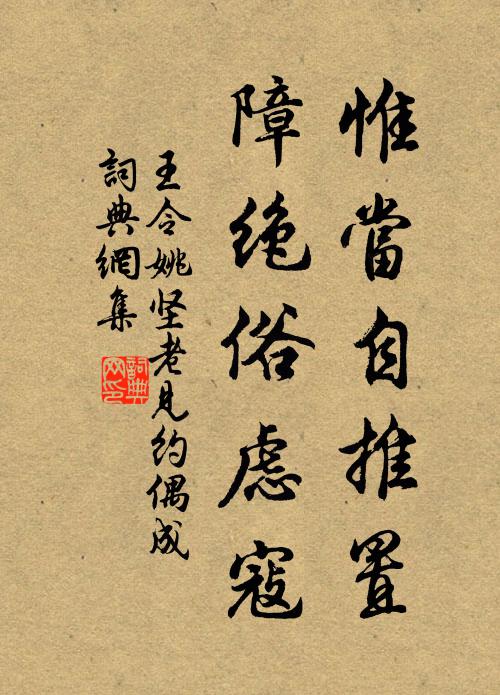 惟當自推置
障絕俗慮寇
王令姚坚老見約偶成
詞典網集
詞典網印